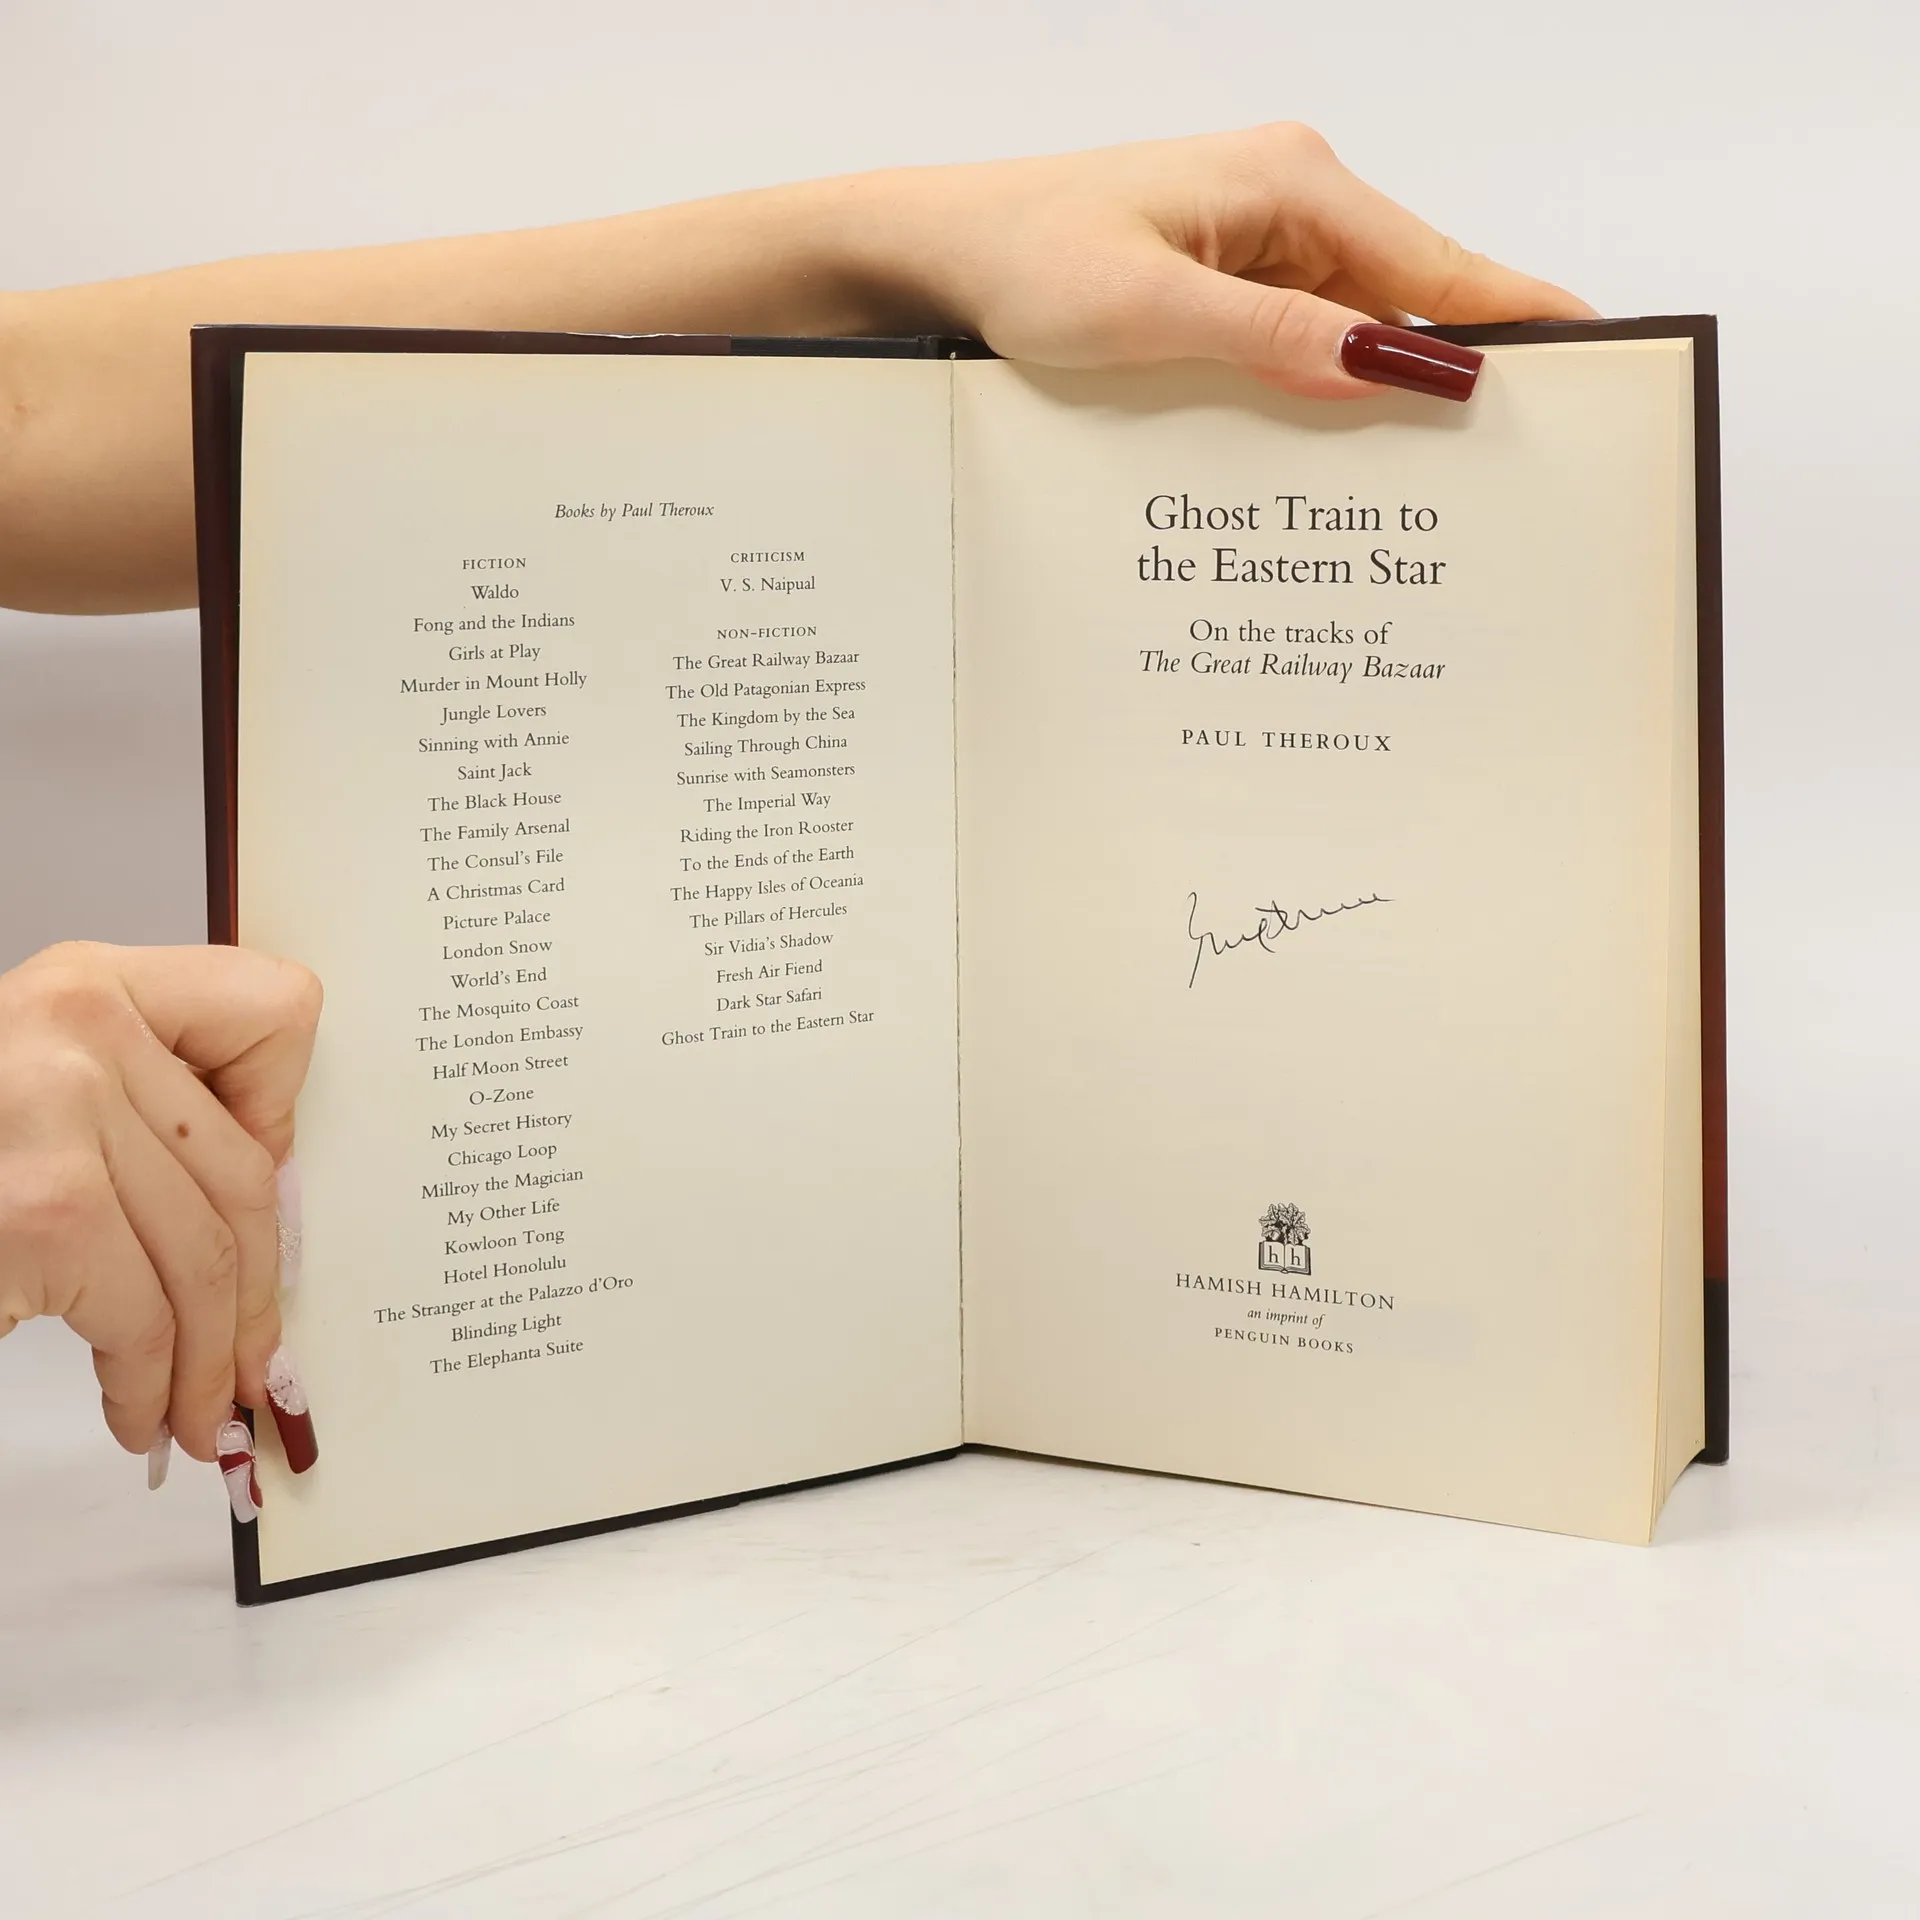 Books by Paul Theroux
FICTION
Waldo
Fong and the Indians
Girls at Play
Murder in Mount Holly
Jungle Lovers
Sinning with Annie
Saint Jack
The Black House
The Family Arsenal
The Consul's File
A Christmas Card
Picture Palace
London Snow
World's End
The Mosquito Coast
The London Embassy
Half Moon Street
O-Zone
My Secret History
Chicago Loop
Millroy the Magician
My Other Life
Kowloon Tong
Hotel Honolulu
The Stranger at the Palazzo d'Oro
Blinding Light
The Elephanta Suite
CRITICISM
V. S. Naipual
NON-FICTION
The Great Railway Bazaar
The Old Patagonian Express
The Kingdom by the Sea
Sailing Through China
Sunrise with Seamonsters
The Imperial Way
Riding the Iron Rooster
To the Ends of the Earth
The Happy Isles of Oceania
The Pillars of Hercules
Sir Vidia's Shadow
Fresh Air Fiend
Dark Star Safari
Ghost Train to the Eastern Star
Ghost Train to
the Eastern Star
On the tracks of
The Great Railway Bazaar
PAUL THEROUX
h h
HAMISH HAMILTON
an imprint of
PENGUIN BOOKS